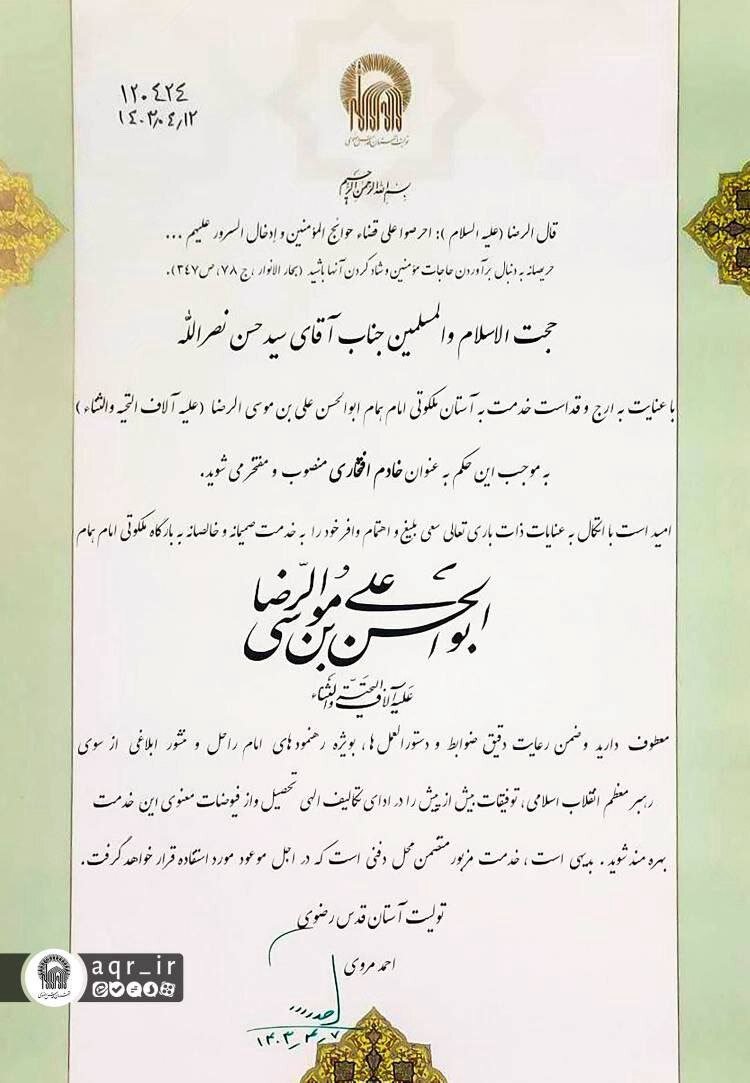 ۱۲۰۴۲۴
۱۴۰۳٫۰۴٫۱۲
بسم الله الرحمن الرحیم
قال الرضا (علیه السلام): احرصوا علی قضاء حوائج المؤمنین و إدخال السرور علیهم ...
حریصانه به دنبال برآوردن حاجات مؤمنین و شاد کردن آنها باشید (بحار الانوار ، ج ۷۸، ص ۳۴۷).
حجت الاسلام والمسلمین جناب آقای سید حسن نصرالله
با عنایت به ارج و قداست خدمت به آستان ملکوتی امام همام ابوالحسن علی بن موسی الرضا (علیه آلاف التحیه والثناء)
به موجب این حکم به عنوان خادم افتخاری منصوب و مفتخر می شوید.
امید است با اتکال به عنایات ذات باری تعالی سعی بلیغ و اهتمام وافر خود را به خدمت صمیمانه و خالصانه به بارگاه ملکوتی امام همام
ابوالحسن علی بن موسی الرضا
علیه آلاف التحیة والثناء
معطوف دارید و ضمن رعایت دقیق ضوابط و دستورالعمل ها، بویژه رهنمودهای امام راحل و منشور ابلاغی از سوی
رهبر معظم انقلاب اسلامی، توفیقات بیش از پیش را در ادای تکالیف الهی تحصیل واز فیوضات معنوی این خدمت
بهره مند شوید . بدیهی است ، خدمت مزبور متضمن محل دفنی است که در اجل موعود مورد استفاده قرار خواهد گرفت.
تولیت آستان قدس رضوی
احمد مروی
۱۴۰۳_۴_۷
aqr_ir